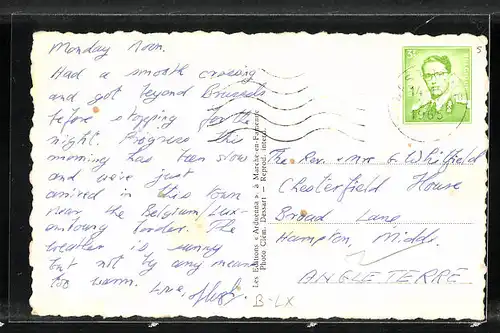 Monday noon.
Had a smooth crossing
and got beyond Brussels
before stopping for the
night. Progress this
morning has been slow
and we've just
arrived in this town
near the Belgium/Lux-
embourg border. The
weather is sunny
but not by any means
too warm. Love,
B-LX
Les Editions « Arduenna », à Marche-en-Famenne
Photo Clém. Dessart — Reprod. interd.
3F
1965
The Rev. & Mrs G. Whitfield
Chesterfield House
Broad Lane,
Hampton, Middx.
ANGLETERRE
S